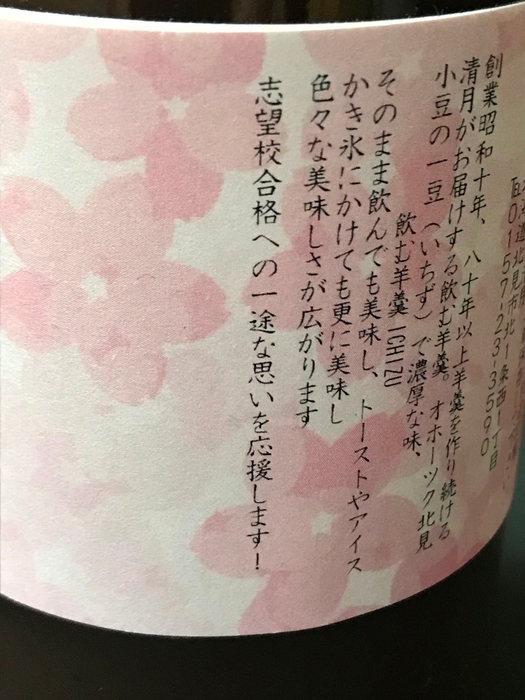 創業昭和十年、八十年以上羊羹を作り続ける
清月がお届けする飲む羊羹。オホーツク北見
小豆の一豆（いちず）で濃厚な味、
飲む羊羹 ICHIZU
そのまま飲んでも美味し、トーストやアイス
かき氷にかけても更に美味し
色々な美味しさが広がります
志望校合格への一途な思いを応援します！
北海道北見市北1条西1丁目
℡0157-23-3590